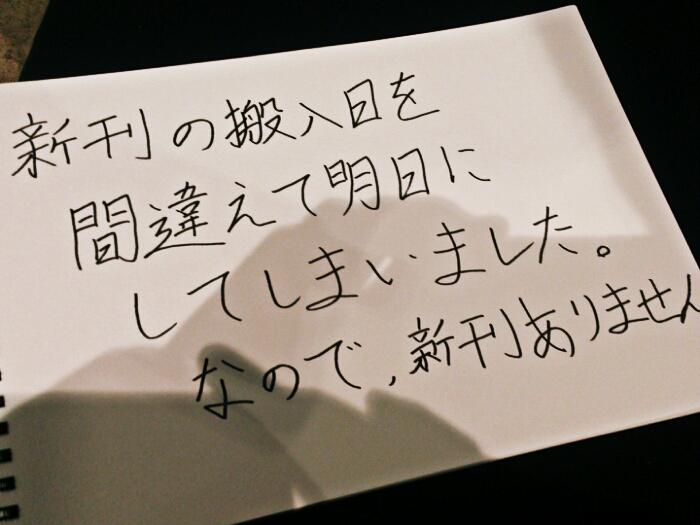 新刊の搬入日を
間違えて明日に
してしまいました。
なので、新刊ありません